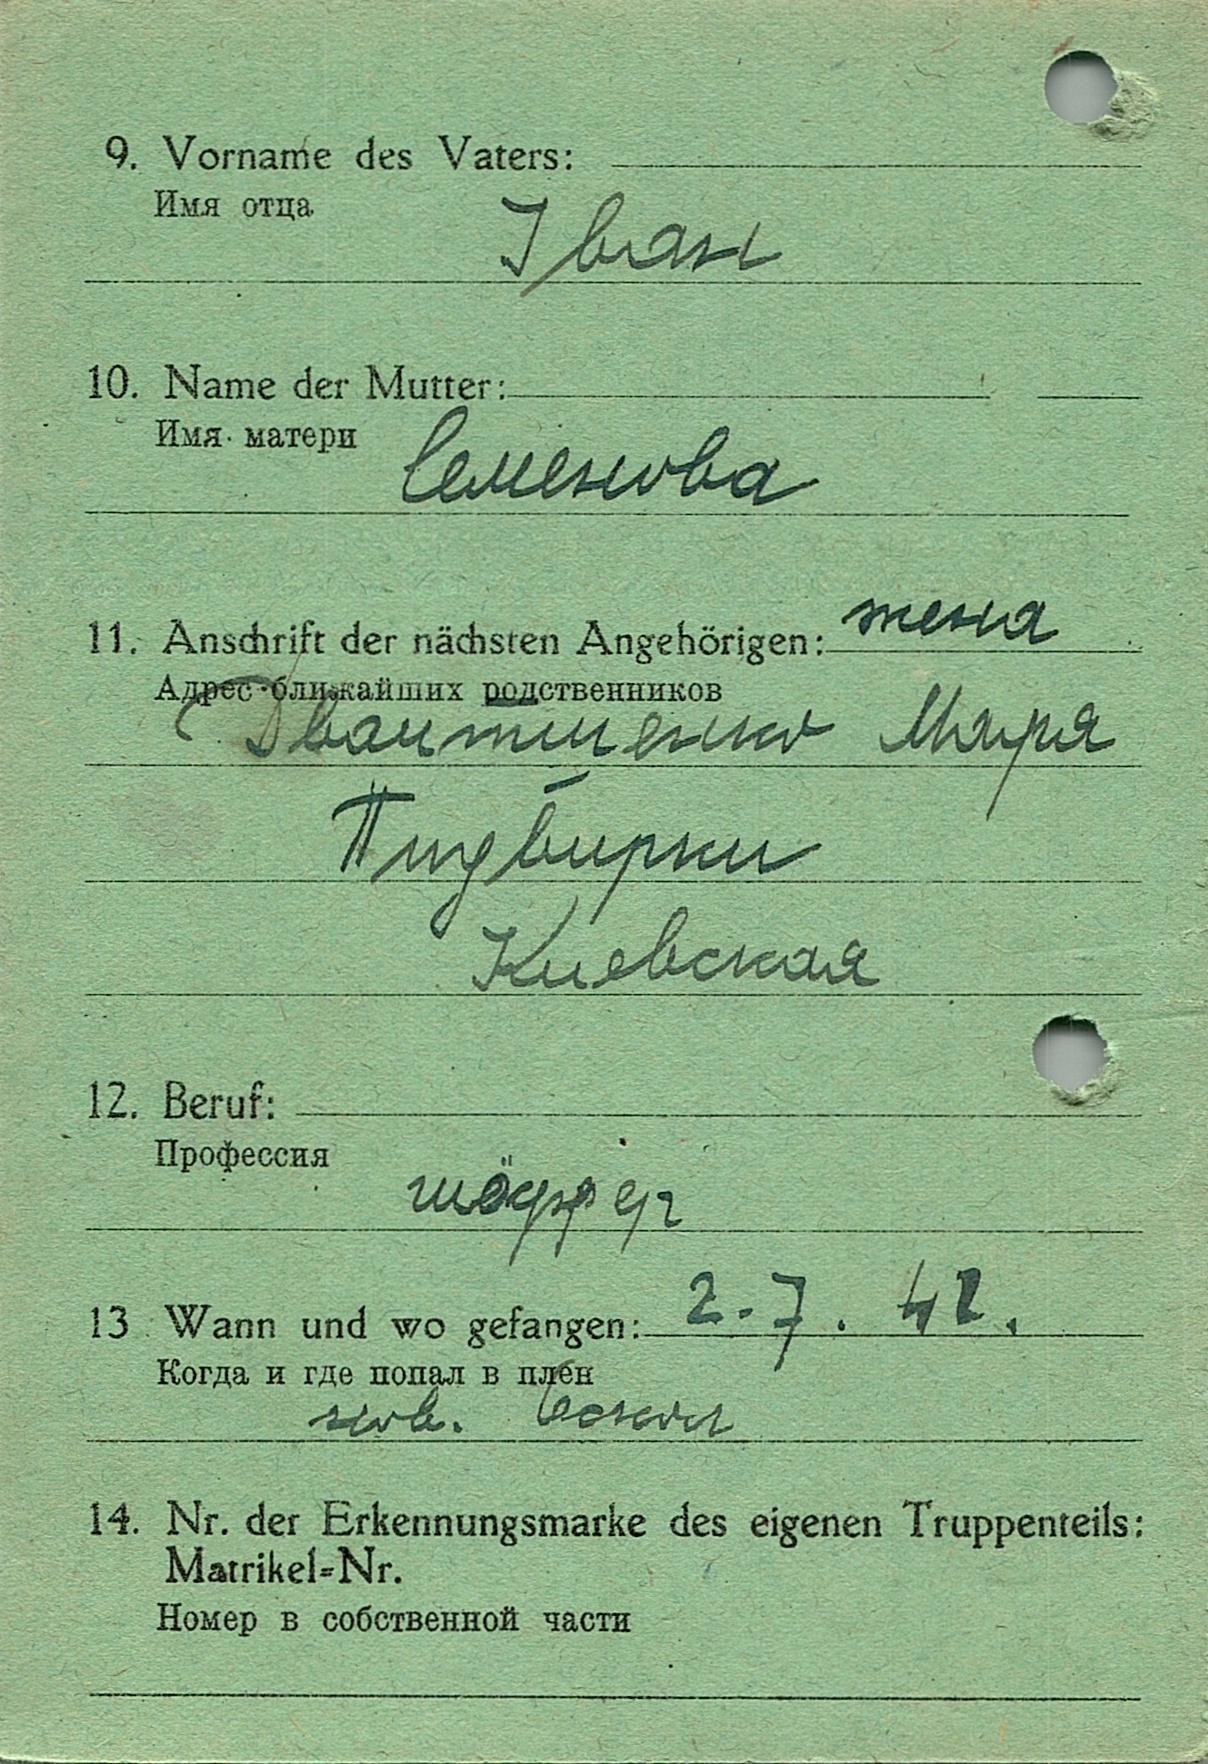 9. Vorname des Vaters:
Имя отца
Іван
10. Name der Mutter:
Имя матери
Семенова
11. Anschrift der nächsten Angehörigen: жена
Адрес ближайших родственников
Маря
Пидбирки
Киевская
12. Beruf:
Профессия
шöффер
13 Wann und wo gefangen: 2.7.42.
Когда и где попал в плен
нов. Оскол
14. Nr. der Erkennungsmarke des eigenen Truppenteils:
Matrikel=Nr.
Номер в собственной части